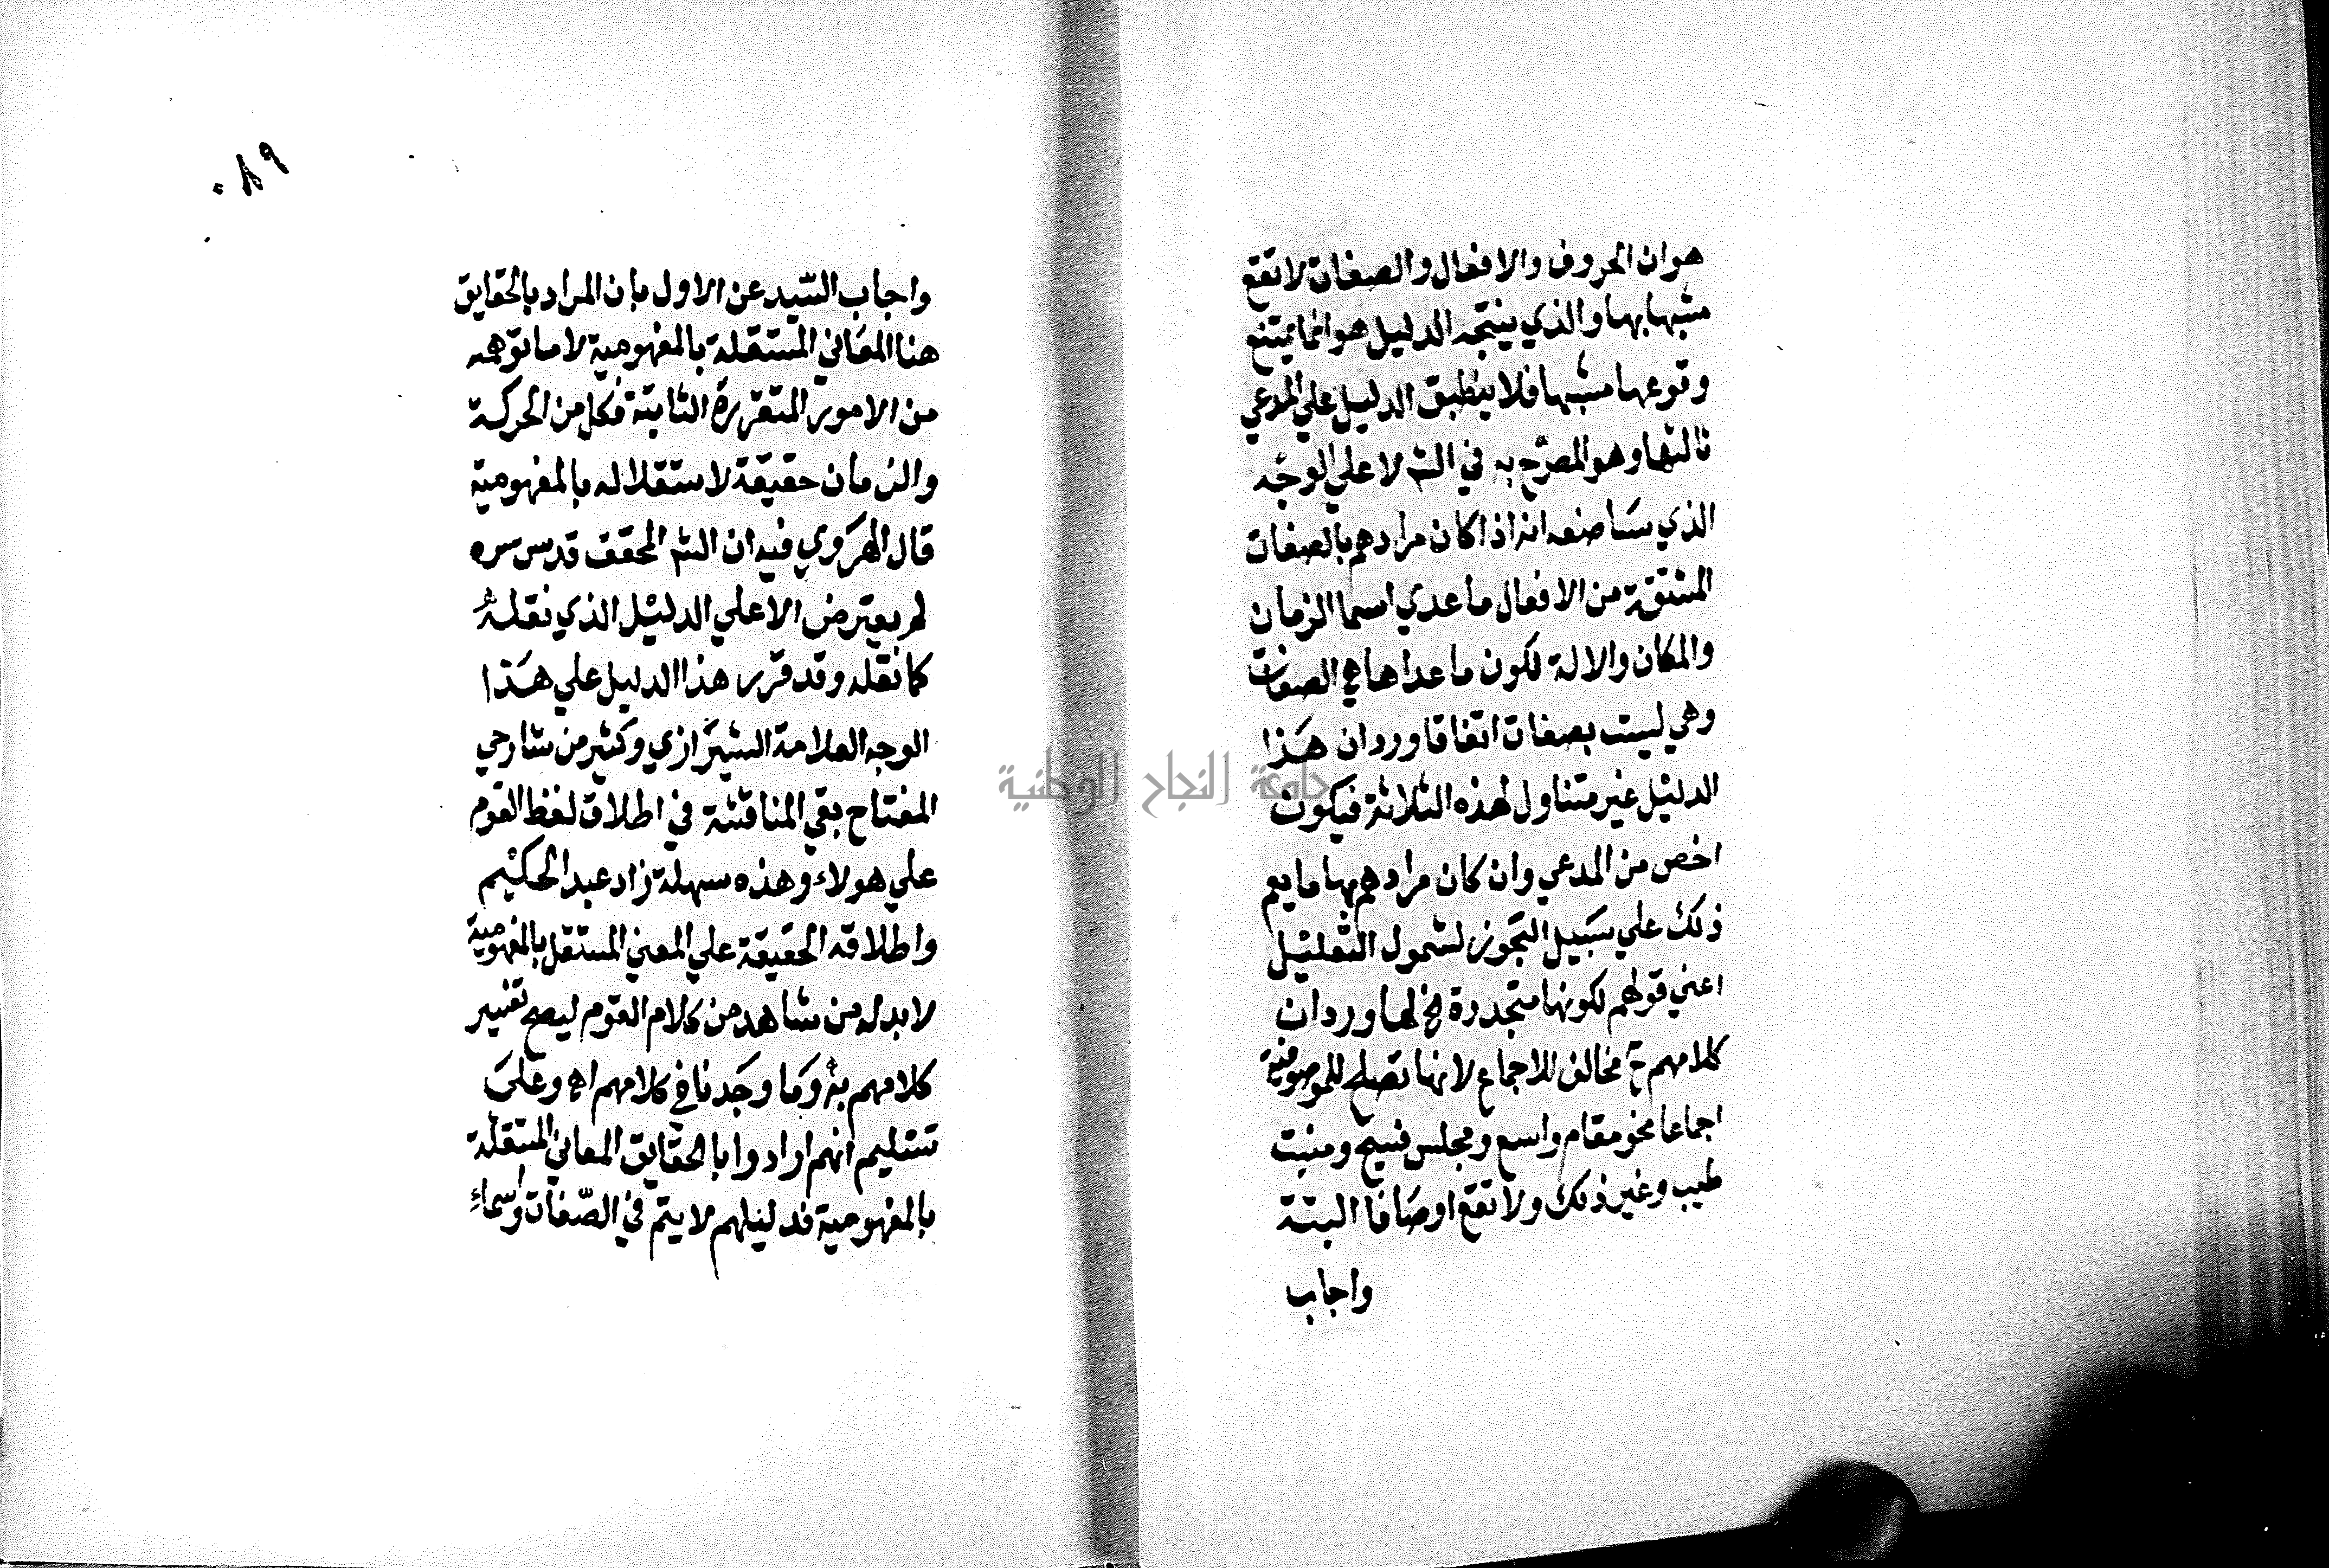 هو ان الحروف والافعال والصفات لا تقع
مشبها بها والذي ينتجه الدليل هو انما يمتنع
وقوعها مشبها فلا ينطبق الدليل علي المدعي
ثالثها وهو المصرح به في الشر لا علي الوجه
الذي ساصنعه انه اذا كان مرادهم بالصفات
المشتقة من الافعال ما عدي اسما الزمان
والمكان والالة لكون ما عداها هي الصفات
وهي ليست بصفات اتفاقا ورد ان هذا
الدليل غير متناول لهذه الثلاثة فيكون
اخص من المدعي وان كان مرادهم بها ما يعم
ذلك علي سبيل التجوز لشمول التعليل
اعني قولهم لكونها متجددة الخ لها ورد ان
كلامهم ح مخالف للاجماع لانها تصلح للموصوفية
اجماعا نحو مقام واسع ومجلس فسيح ومنبت
طيب وغير ذلك ولا تقع اوصافا البتة
واجاب
٠٨٩
واجاب السيد عن الاول بان المراد بالحقايق
هنا المعاني المستقلة بالمفهومية لا ما توهمه
من الامور المتقررة الثابتة فكل من الحركة
والزمان حقيقة لاستقلاله بالمفهومية
قال الهروي فيه ان الشر المحقق قدس سره
لم يعترض الا علي الدليل الذي نقله
كما نقله وقد قرر هذا الدليل علي هذا
الوجه العلامة الشيرازي وكثير من شارحي
المفتاح بقي المناقشة في اطلاق لفظ القوم
علي هولاء وهذه سهلة زاد عبد الحكيم
واطلاقه الحقيقة علي المعني المستقل بالمفهومية
لا بد له من شاهد من كلام القوم ليصح تفسير
كلامهم به وما وجدنا في كلامهم اه وعلي
تسليم انهم ارادوا بالحقايق المعاني المستقلة
بالمفهومية فدليلهم لا يتم في الصفات واسماء
جامعة النجاح الوطنية